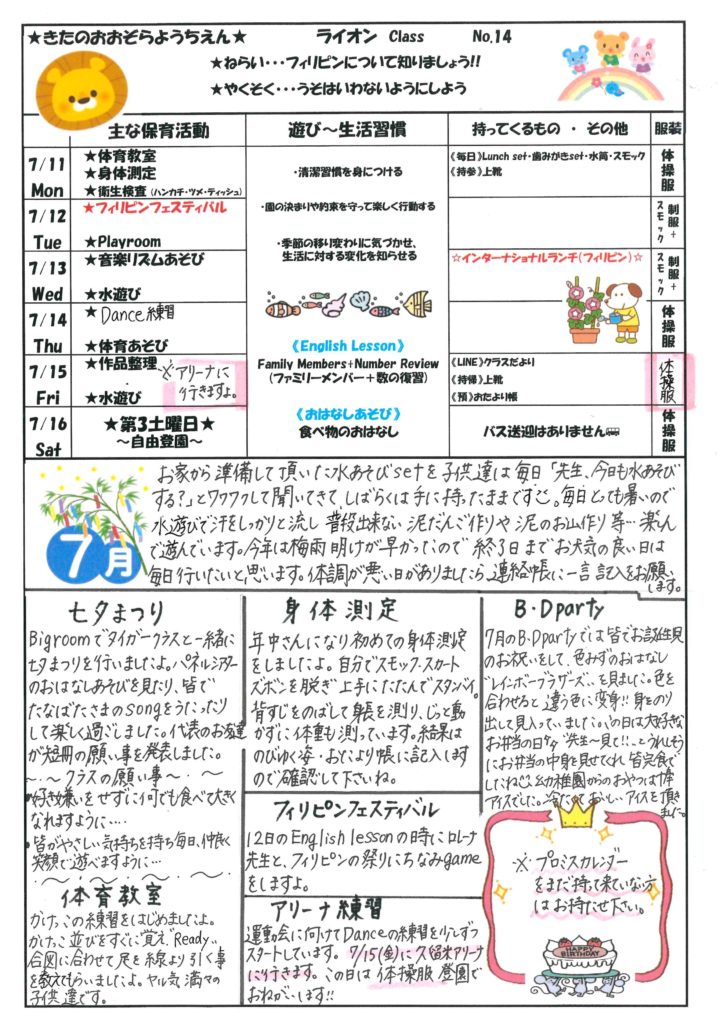 ★きたのおおぞらようちえん★ ライオン Class No.14
★ねらい・・・フィリピンについて知りましょう!!
★やくそく・・・うそはいわないようにしよう
主な保育活動 遊び～生活習慣 持ってくるもの ・ その他 服装
7/11 Mon
★体育教室
★身体測定
★衛生検査(ハンカチ・ツメ・ティッシュ)
・清潔習慣を身につける
《毎日》Lunch set・歯みがきset・水筒・スモック
《持参》上靴
体操服
7/12 Tue
★フィリピンフェスティバル
★Playroom
・園の決まりや約束を守って楽しく行動する
制服+スモック
7/13 Wed
★音楽リズムあそび
★水遊び
・季節の移り変わりに気づかせ、
生活に対する変化を知らせる
☆インターナショナルランチ(フィリピン)☆
制服+スモック
7/14 Thu
★Dance練習
★体育あそび
《English Lesson》
体操服
7/15 Fri
★作品整理
★水遊び
※アリーナに
行きますよ。
Family Members+Number Review
(ファミリーメンバー+数の復習)
《LINE》クラスだより
《持帰》上靴
《預》おたより帳
体操服
7/16 Sat
★第3土曜日★
～自由登園～
《おはなしあそび》
食べ物のおはなし
バス送迎はありません
体操服
7月
お家から準備して頂いた水あそびsetを子供達は毎日「先生、今日も水あそび
する?」とワクワクして聞いてきて しばらくは手に持ったままです。毎日とっても暑いので
水遊びで汗をしっかりと流し 普段出来ない泥だんご作りや泥のお山作り等…楽しん
で遊んでいます。今年は梅雨明けが早かったので 終了日までお天気の良い日は
毎日行いたいと思います。体調が悪い日がありましたら 連絡帳に一言 記入をお願い
します。
七夕まつり
Bigroomでタイガークラスと一緒に
七夕まつりを行いましたよ。パネルシアター
のおはなしあそびを見たり、皆で
たなばたさまのsongをうたったり
して楽しく過ごしました。代表のお友達
が短冊の願い事を発表しました。
～・～クラスの願い事～・～
・好き嫌いをせずに何でも食べて大きく
なれますように…
・皆がやさしい気持ちを持ち毎日、仲良く
笑顔で遊べますように…
体育教室
かけっこの練習をはじめましたよ。
かけっこ並びをすぐに覚え"Ready"、
合図に合わせて足を線より引く事
を教えてもらいましたよ。ヤル気満々の
子供達です。
身体測定
年中さんになり初めての身体測定
をしましたよ。自分でスモック・スカート
ズボンを脱ぎ上手にたたんでスタンバイ。
背すじをのばして身長を測り、じっと動
かずに体重も測っています。結果は
のびゆく姿・おたより帳に記入します
ので確認して下さいね。
フィリピンフェスティバル
12日のEnglish lessonの時にロレーナ
先生と、フィリピンの祭りにちなみgame
をしますよ。
アリーナ練習
運動会に向けてDanceの練習を少しずつ
スタートしています。7/15(金)に久留米アリーナ
に行きます。この日は体操服登園で
おねがいします!!
B・Dparty
7月のB・Dpartyでは皆でお誕生児
のお祝いをして、色みずのおはなし
"レインボーブラザーズ"を見ました。色を
合わせると違う色に変身!!身をのり
出して見入っていました。この日は大好きな
お弁当の日"先生～見て!!"とうれしそう
にお弁当の中身を見せてくれ 皆完食で
したね。幼稚園からのおやつは
アイスでした。冷たくて おいしいアイスを頂き
ました。
※プロミスカレンダー
をまだ持って来ていない方
はお持たせ下さい。
HAPPY
BIRTHDAY